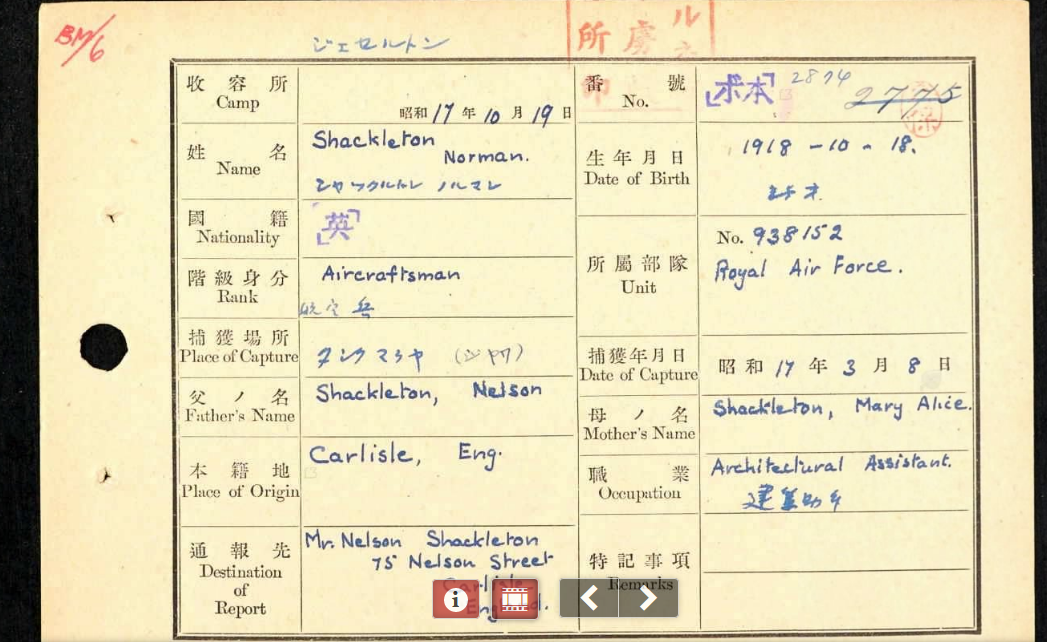 BM/6
ジェセルトン
所 虜 ル
收容所
Camp
昭和17年10月19日
番號
No.
本
2874
2775
姓名
Name
Shackleton
Norman.
シヤツクルトレ ノルマレ
生年月日
Date of Birth
1918-10-18.
國籍
Nationality
英
階級身分
Rank
Aircraftsman
所屬部隊
Unit
No. 938152
Royal Air Force.
捕獲場所
Place of Capture
捕獲年月日
Date of Capture
昭和17年3月8日
父ノ名
Father's Name
Shackleton, Nelson
母ノ名
Mother's Name
Shackleton, Mary Alice.
本籍地
Place of Origin
Carlisle, Eng.
職業
Occupation
Architectural Assistant.
通報先
Destination
of
Report
Mr. Nelson Shackleton
75 Nelson Street
Carlisle
England.
特記事項
Remarks